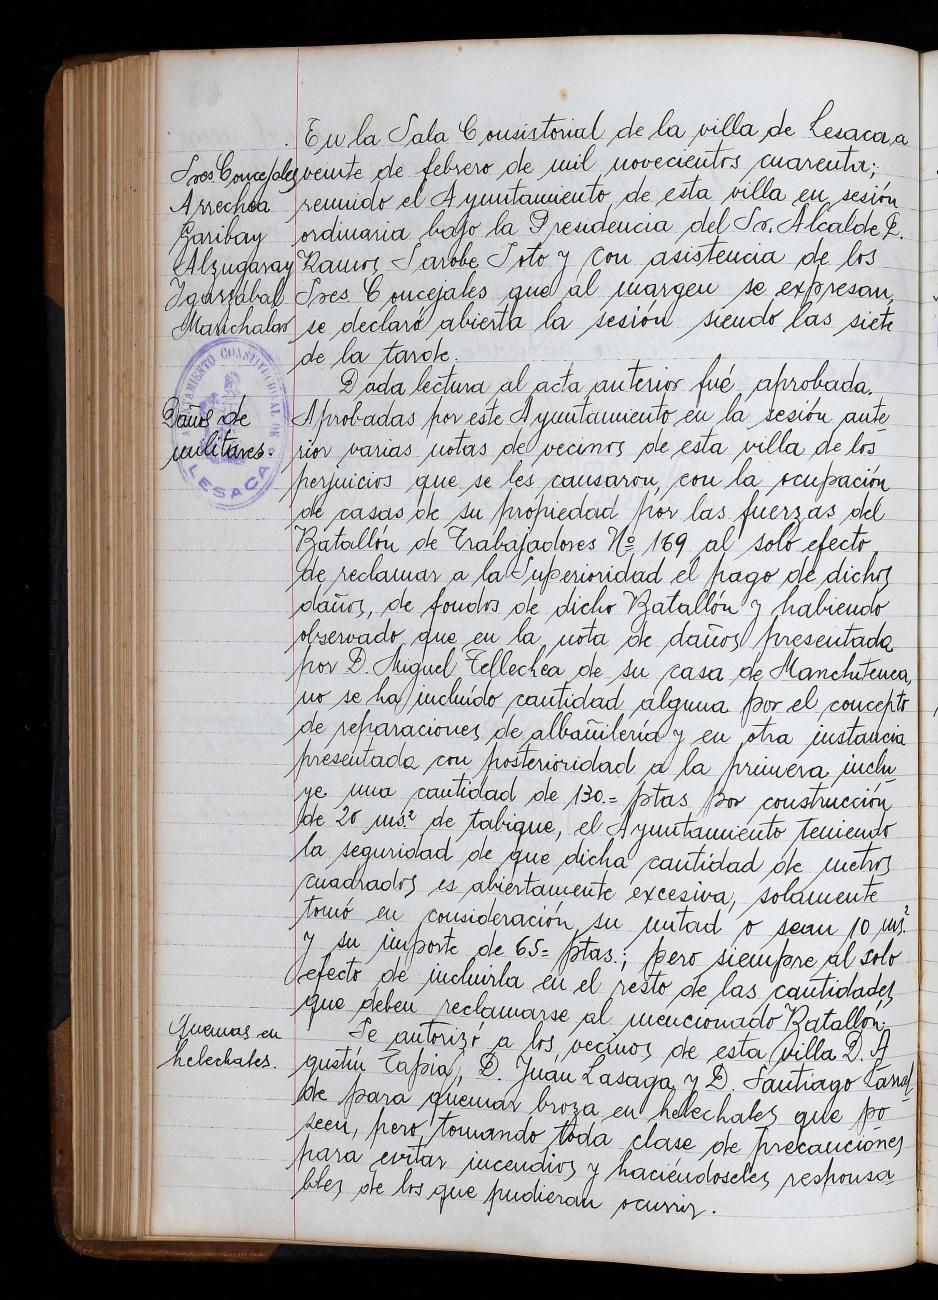 En la Sala Consistorial de la villa de Lesaca, a
Sres Concejales
veinte de febrero de mil novecientos cuarenta;
Arrechea
reunido el Ayuntamiento de esta villa en sesión
Garibay
ordinaria bajo la Presidencia del Sr. Alcalde D.
Alzugaray
Ramos Sarobe Soto y con asistencia de los
Igarzabal
Sres Concejales que al margen se expresan,
Manchalar
se declaró abierta la sesión siendo las siete
de la tarde.
Dada lectura al acta anterior fué aprobada.
AYUNTAMIENTO CONSTITUCIONAL DE LESACA
Daños de
militares.
Aprobadas por este Ayuntamiento en la sesión ante-
rior varias notas de vecinos de esta villa de los
perjuicios que se les causaron, con la ocupación
de casas de su propiedad por las fuerzas del
Batallón de Trabajadores Nº 169 al solo efecto
de reclamar a la Superioridad el pago de dichos
daños, de fondos de dicho Batallón y habiendo
observado que en la nota de daños presentada
por D. Miguel Tellechea de su casa de Manchitenea,
no se ha incluído cantidad alguna por el concepto
de reparaciones de albañilería y en otra instancia
presentada con posterioridad a la primera inclu-
ye una cantidad de 130.= ptas por construcción
de 20 ms.² de tabique, el Ayuntamiento teniendo
la seguridad de que dicha cantidad de metros
cuadrados es abiertamente excesiva, solamente
tomó en consideración su mitad o sean 10 ms.²
y su importe de 65= ptas.; pero siempre al solo
efecto de incluirla en el resto de las cantidades
que deben reclamarse al mencionado Batallón.
Quemas en
helechales.
Se autorizó a los vecinos de esta villa D. A-
gustín Tapia, D. Juan Lasaga y D. Santiago
de para quemar broza en helechales que po-
seen, pero tomando toda clase de precauciones
para evitar incendios y haciéndoseles responsa-
bles de los que pudieran ocurrir.